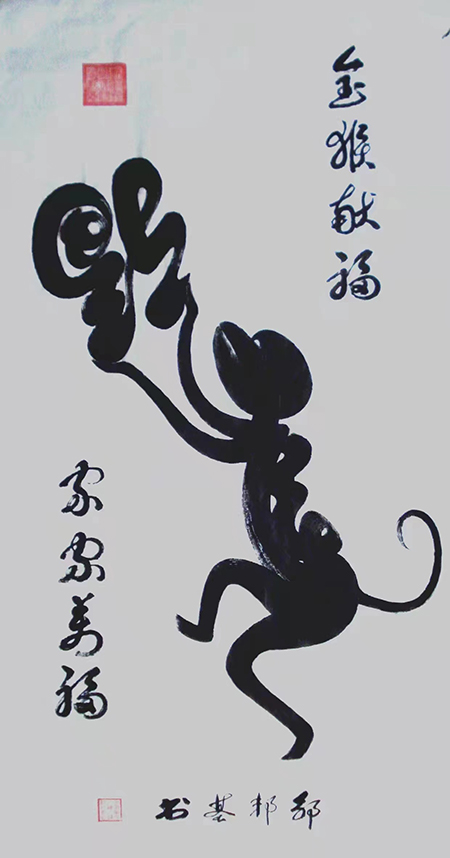 金猴献福
家家萬福
邦基书